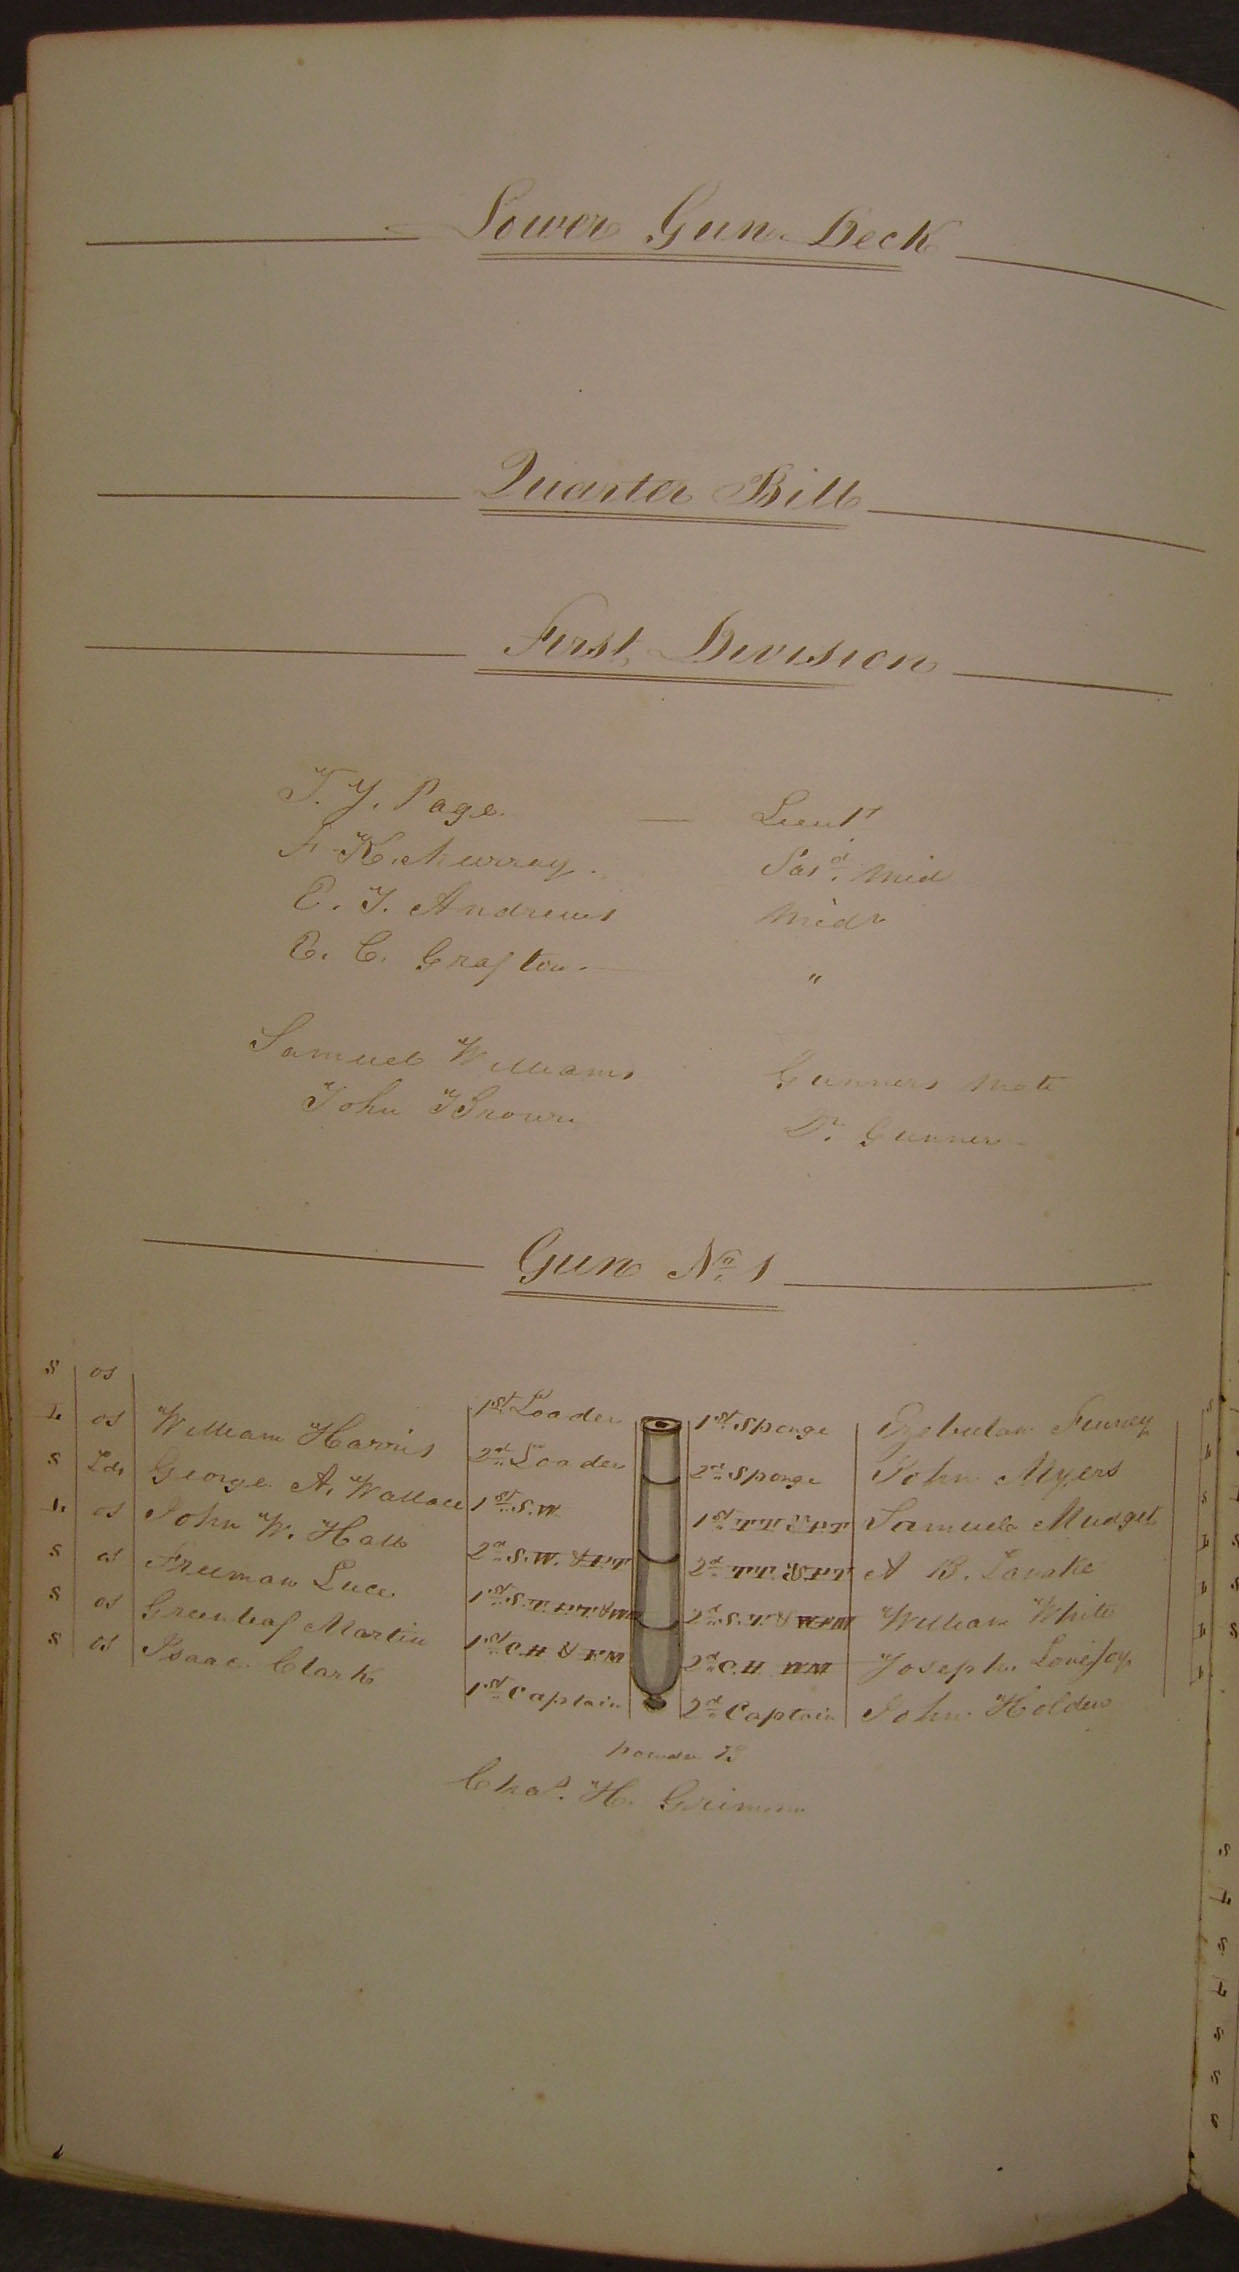 Lower Gun Deck
Quarter Bill
First Division
T. J. Page — Lieut
F. K. Murray. Pasd. Mid
E. T. Andrews Midn
E. C. Grafton — "
Samuel Williams Gunners Mate
John Brown Qr. Gunner
Gun No. 1
S os
L os William Harris 1st Loader 1st Sponge Finney
S Lds George A. Wallace 2d Loader 2d Sponge John Myers
L os John W. Hall 1st S.W. 1st T.T. & P.T Samuel Mudget
S os Freeman Luce 2d S.W. & P.T 2d T.T. & P.T A B.
S os Greenleaf Martin 1st S.T. 2d S.T. & William White
S os Isaac Clark 1st C.H & F.M 2d C.H Joseph Lovejoy
1st Captain 2d Captain John Holden
powder B
Chas. H. Grimm